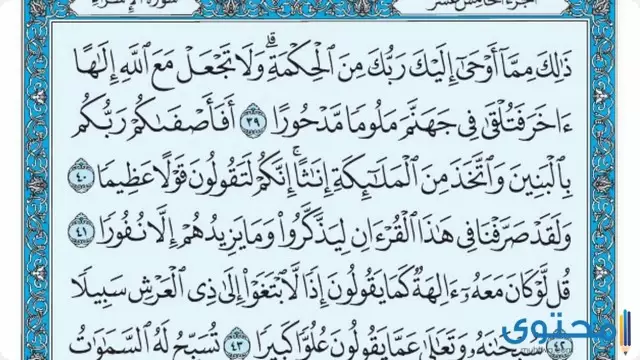 الجزء الخامس عشر سورة الإسراء
ذَٰلِكَ مِمَّآ أَوْحَىٰٓ إِلَيْكَ رَبُّكَ مِنَ ٱلْحِكْمَةِ ۗ وَلَا تَجْعَلْ مَعَ ٱللَّهِ إِلَٰهًا
ءَاخَرَ فَتُلْقَىٰ فِى جَهَنَّمَ مَلُومًا مَّدْحُورًا ٣٩ أَفَأَصْفَىٰكُمْ رَبُّكُم
بِٱلْبَنِينَ وَٱتَّخَذَ مِنَ ٱلْمَلَٰٓئِكَةِ إِنَٰثًا ۚ إِنَّكُمْ لَتَقُولُونَ قَوْلًا عَظِيمًا ٤٠
وَلَقَدْ صَرَّفْنَا فِى هَٰذَا ٱلْقُرْءَانِ لِيَذَّكَّرُوا۟ وَمَا يَزِيدُهُمْ إِلَّا نُفُورًا ٤١
قُل لَّوْ كَانَ مَعَهُۥٓ ءَالِهَةٌ كَمَا يَقُولُونَ إِذًا لَّٱبْتَغَوْا۟ إِلَىٰ ذِى ٱلْعَرْشِ سَبِيلًا
٤٢ سُبْحَٰنَهُۥ وَتَعَٰلَىٰ عَمَّا يَقُولُونَ عُلُوًّا كَبِيرًا ٤٣ تُسَبِّحُ لَهُ ٱلسَّمَٰوَٰتُ
محتوى